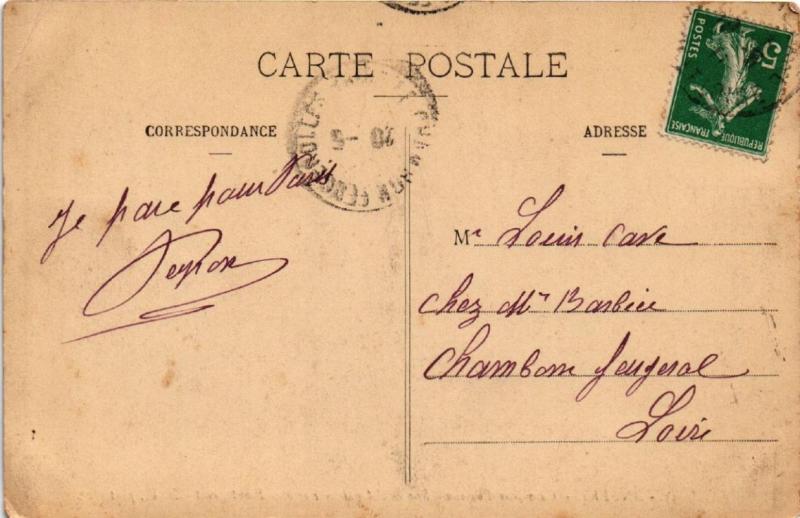 CARTE POSTALE
CORRESPONDANCE
ADRESSE
5
POSTES
REPUBLIQUE FRANÇAISE
20 -5
Je pars pour Paris
Peyron
Mr Louis Cave
chez Mr Barbier
Chambon feugerol
Loire